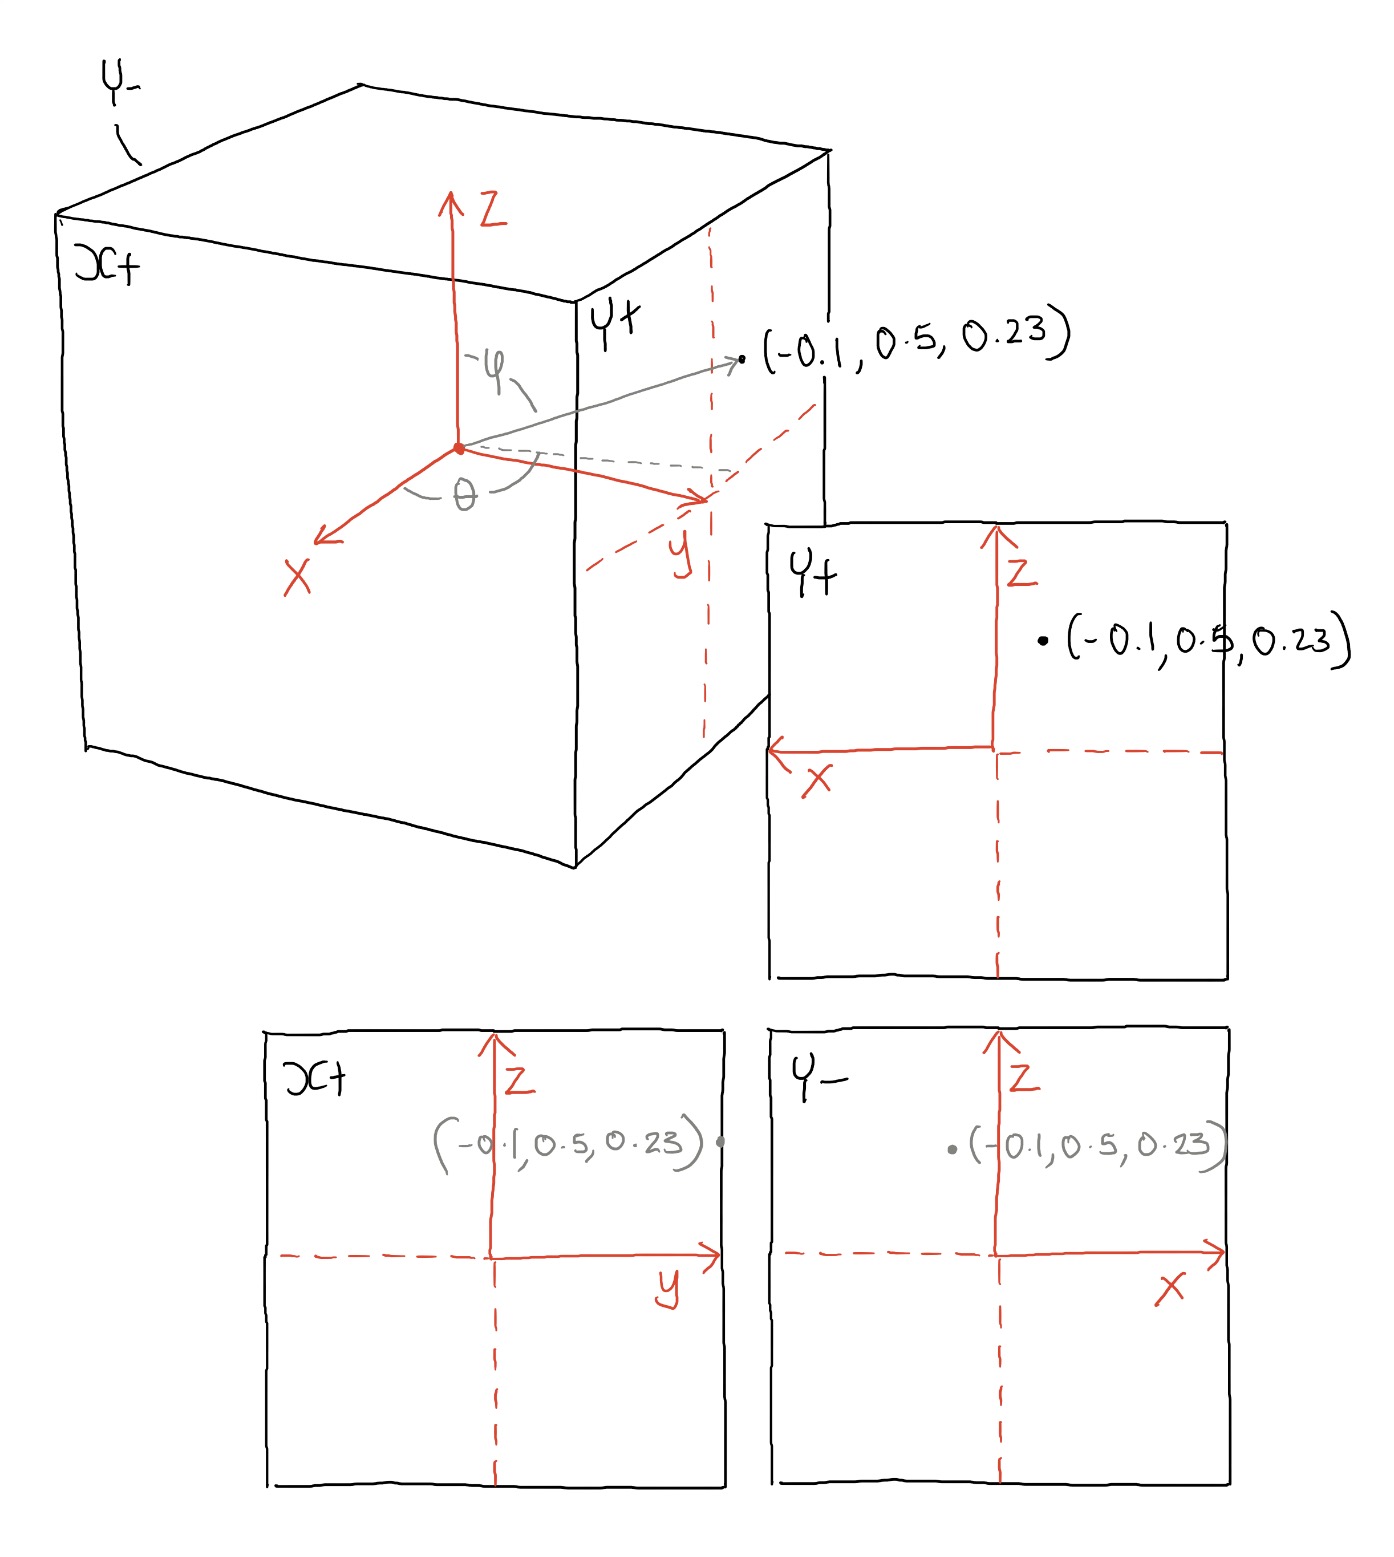 Y-
Z
x+
Y+
(-0.1, 0.5, 0.23)
-φ
θ
y
X
Y+
Z
(-0.1, 0.5, 0.23)
X
x+
Z
(-0.1, 0.5, 0.23)
y
Y-
Z
(-0.1, 0.5, 0.23)
X